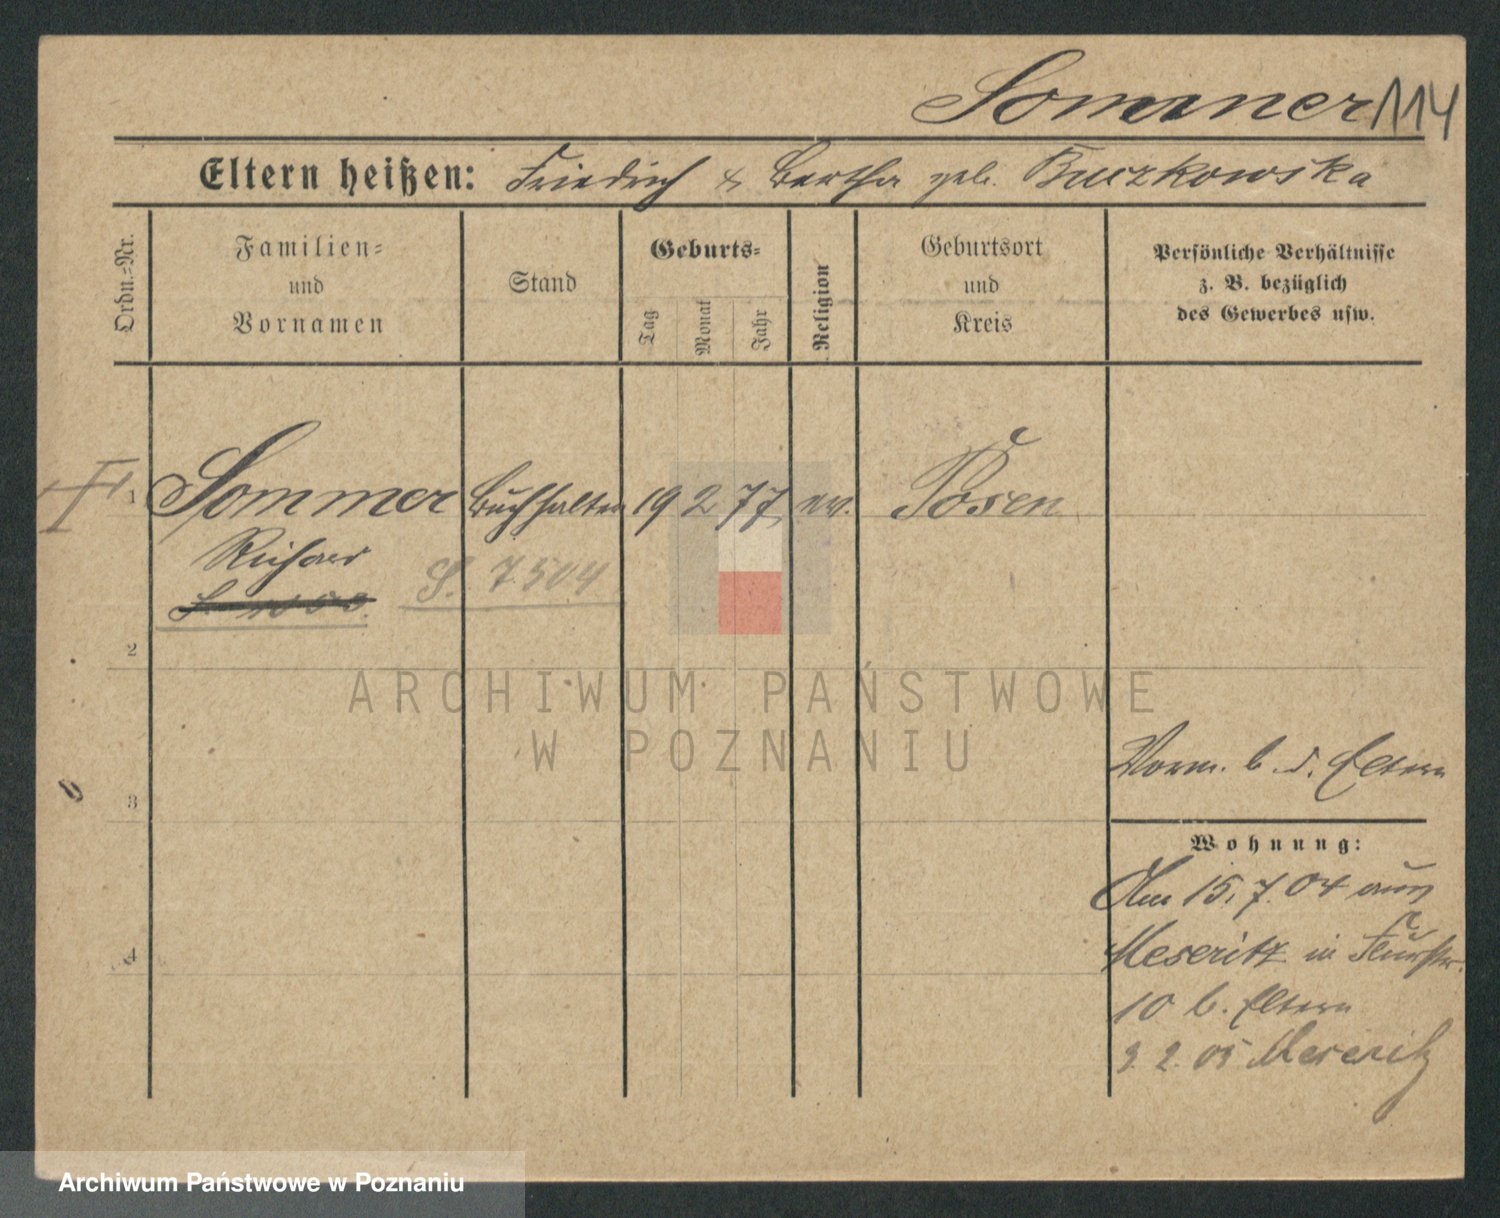 Sommer 114
Eltern heißen: Friedrich & Bertha geb. Buczkowska
Ordn.=Nr.
Familien=
und
Vornamen
Stand
Geburts=
Tag
Monat
Jahr
Religion
Geburtsort
und
Kreis
Persönliche Verhältnisse
z. B. bezüglich
des Gewerbes usw.
1 Sommer Buchhalter 19 2 77 ev. Posen
Richard
S. 7504
2
3
4
Vorm. b. d. Eltern
Wohnung:
Am 15.7.04 aus
Meseritz in
10 b. Eltern
3.2.05 Meseritz
ARCHIWUM PAŃSTWOWE
W POZNANIU
Archiwum Państwowe w Poznaniu